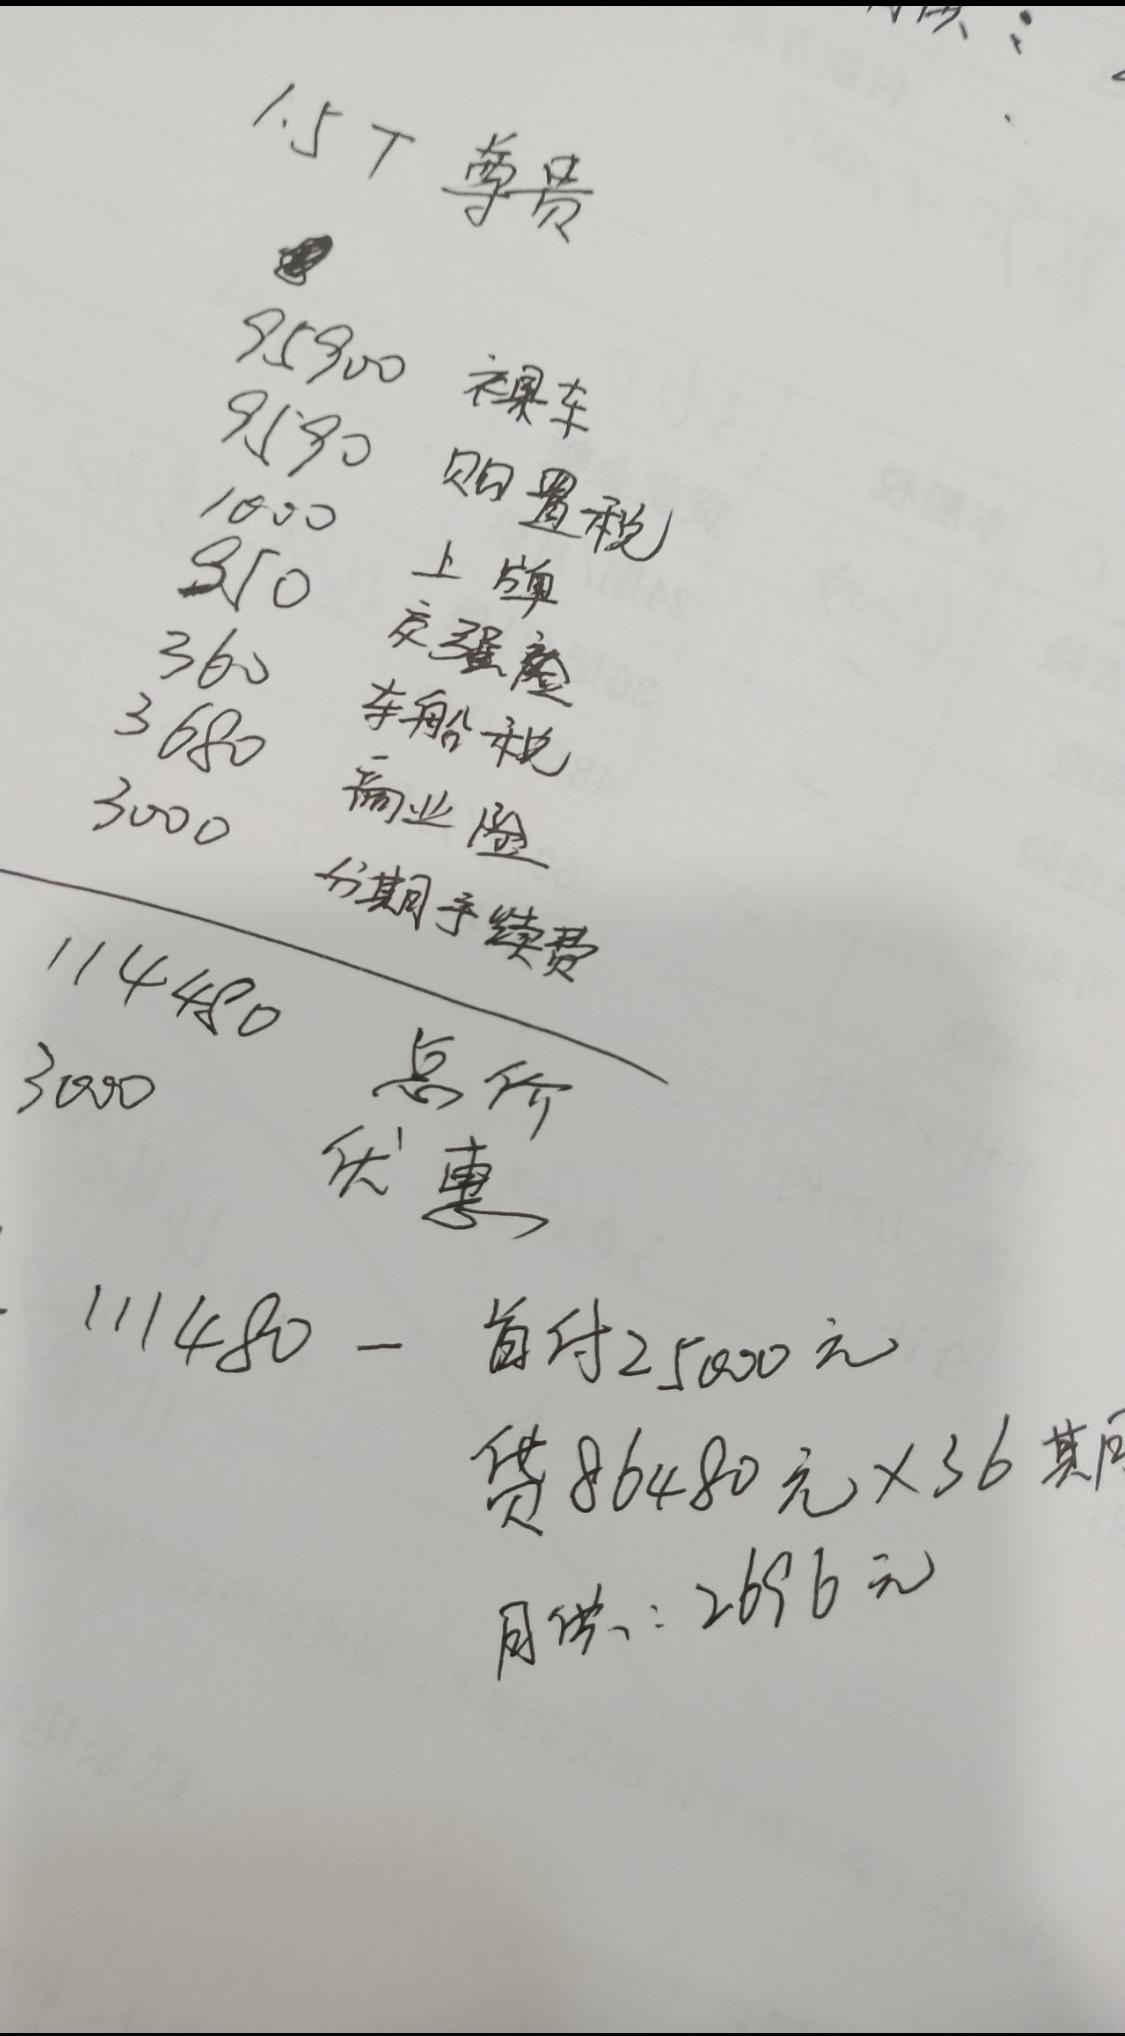 1.5T 尊贵
95900 裸车
9590 购置税
1000 上牌
950 交强险
360 车船税
3680 商业险
3000 分期手续费
114480 总价
3000 优惠
111480 - 首付25000元
贷86480元×36期
月供:2696元